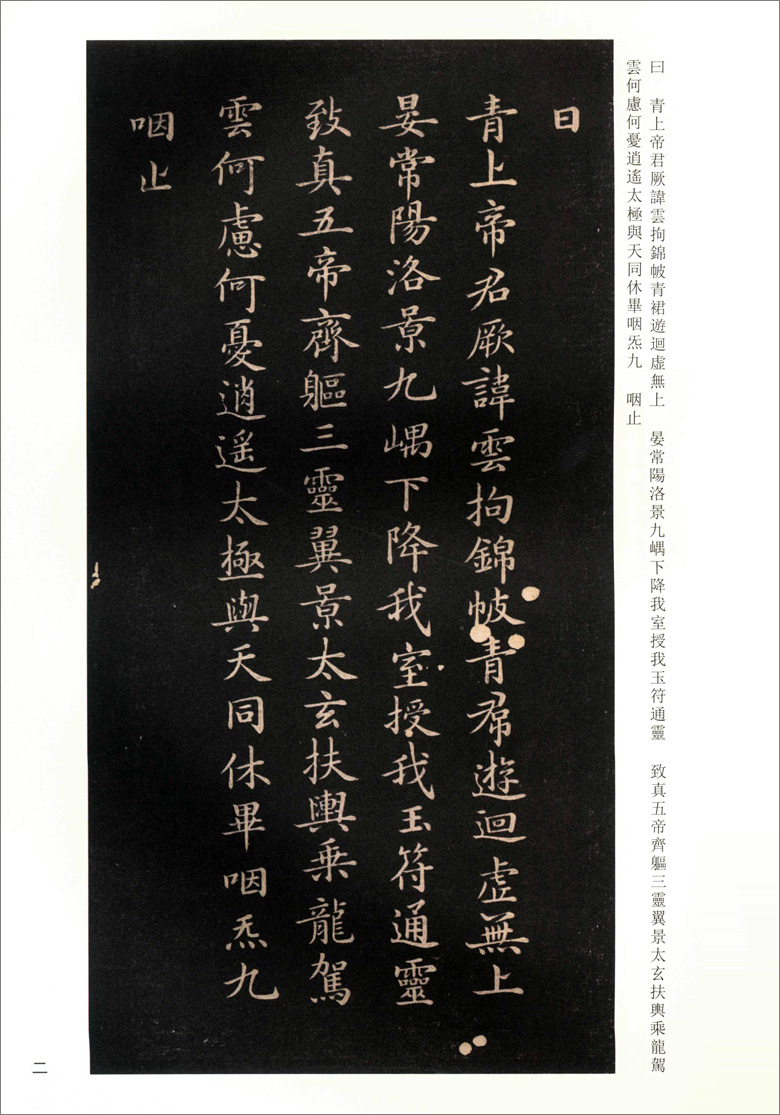 曰　青上帝君厥諱雲拘錦帔青裙遊迴虛無上　晏常陽洛景九嵎下降我室授我玉符通靈　致真五帝齊軀三靈翼景太玄扶輿乘龍駕
雲何慮何憂逍遙太極與天同休畢咽炁九　咽止
曰
青上帝君厥諱雲拘錦帔青帬遊迴虛無上
晏常陽洛景九嵎下降我室授我玉符通靈
致真五帝齊軀三靈翼景太玄扶輿乘龍駕
雲何慮何憂逍遙太極與天同休畢咽炁九
咽止
二